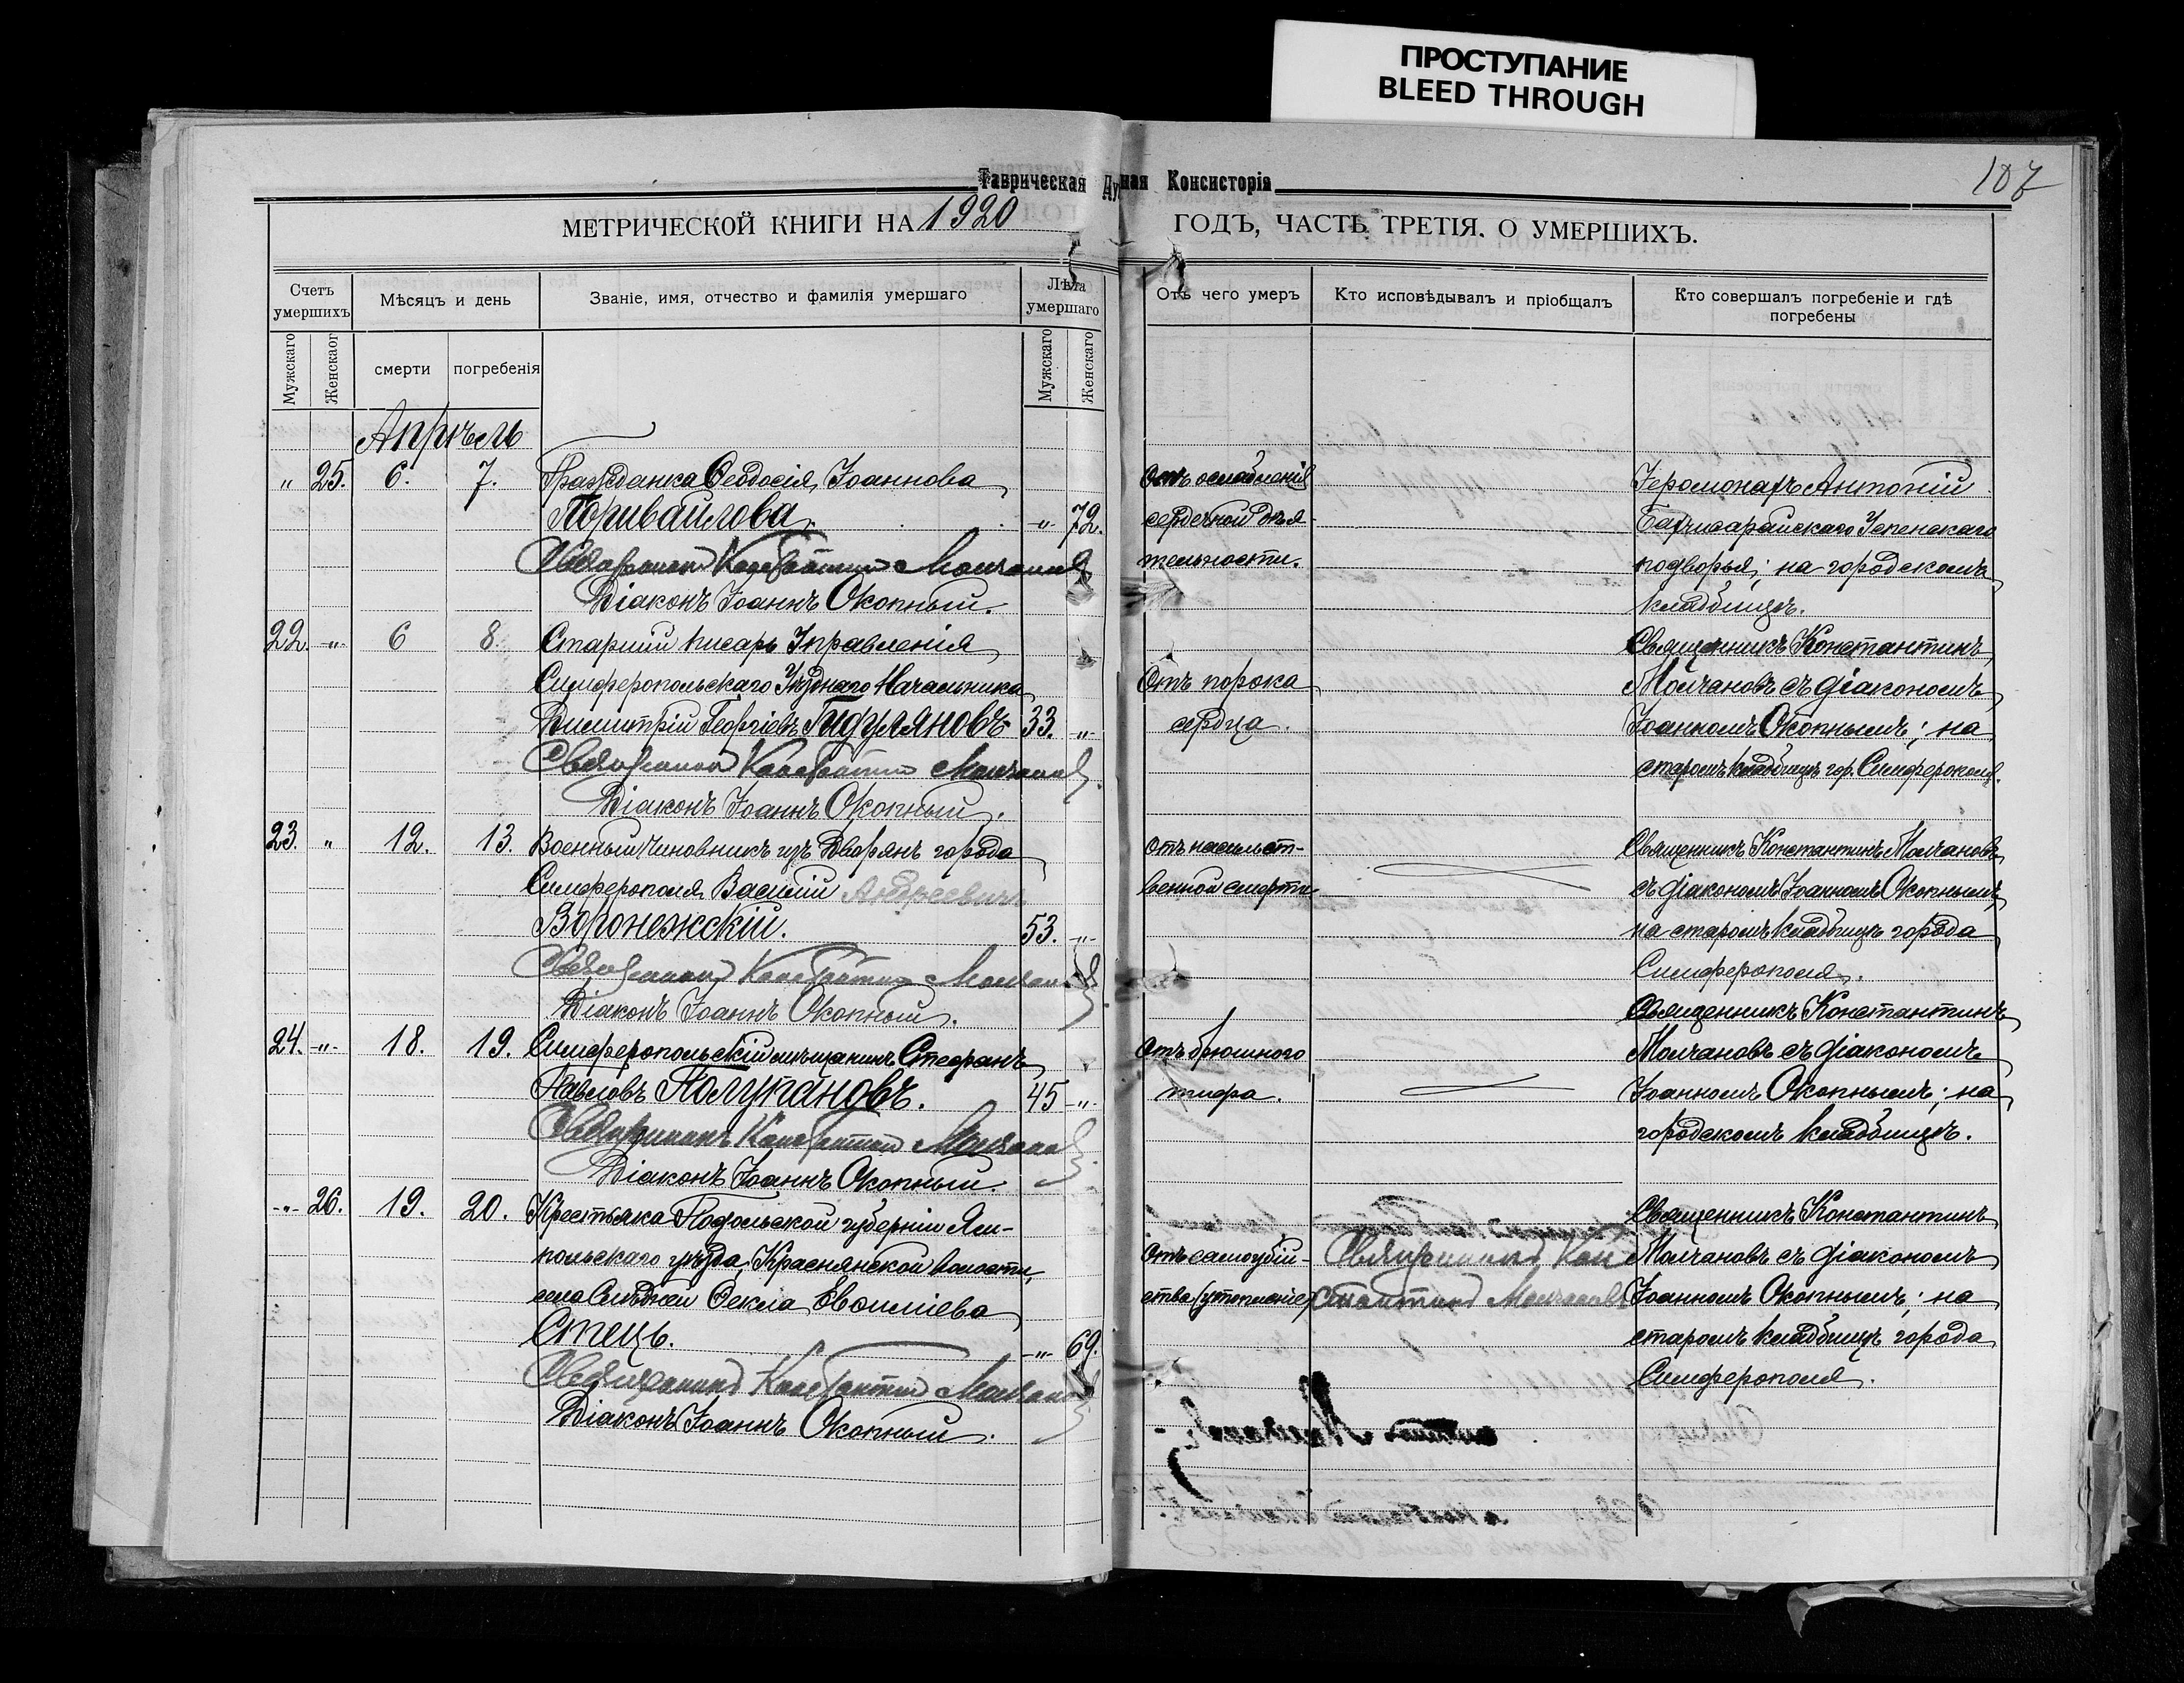 ПРОСТУПАНИЕ
BLEED THROUGH
107
Таврическая Духовная Консисторія
МЕТРИЧЕСКОЙ КНИГИ НА 1920 ГОДЪ, ЧАСТЬ ТРЕТІЯ. О УМЕРШИХЪ.
Счетъ умершихъ
Мѣсяцъ и день
Званіе, имя, отчество и фамилія умершаго
Лѣта умершаго
Отъ чего умеръ
Кто исповѣдывалъ и пріобщалъ
Кто совершалъ погребеніе и гдѣ погребены
Мужскаго
Женскаог
смерти
погребенія
Мужскаго
Женскаго
Апрѣль
" 25. 6. 7. Гражданка Ѳеодосія Іоаннова
Поривайлова. " 72.
Священникъ Константинъ Молчановъ
Діаконъ Іоаннъ Окопный.
Отъ ослабленія
сердечной дѣя-
тельности.
Іеромонахъ Антоній
Бахчисарайскаго Успенскаго
подворья; на городскомъ
кладбищѣ.
22. " 6 8. Старшій писарь Управленія
Симферопольскаго Уѣзднаго Начальника
Димитрій Георгіевъ Гидуляновъ 33. "
Священникъ Константинъ Молчановъ
Діаконъ Іоаннъ Окопный.
Отъ порока
сердца.
Священникъ Константинъ
Молчановъ съ діакономъ
Іоанномъ Окопнымъ; на
старомъ кладбищѣ гор. Симферополя.
23. " 12. 13. Военный чиновникъ изъ Дворянъ города
Симферополя Василій Андреевичъ
Воронежскій. 53. "
Священникъ Константинъ Молчановъ
Діаконъ Іоаннъ Окопный.
Отъ насильст-
венной смерти
Священникъ Константинъ Молчановъ
съ діакономъ Іоанномъ Окопнымъ;
на старомъ кладбищѣ города
Симферополя.
24. " 18. 19. Симферопольскій мѣщанинъ Стефанъ
Павловъ Полупановъ. 45 "
Священникъ Константинъ Молчановъ
Діаконъ Іоаннъ Окопный.
Отъ брюшного
тифа.
Священникъ Константинъ
Молчановъ съ діакономъ
Іоанномъ Окопнымъ; на
городскомъ кладбищѣ.
" 26. 19. 20. Крестьянка Подольской губерніи Ям-
польскаго уѣзда, Краснянской волости,
села Ѳекла
Стецъ. " 69.
Священникъ Константинъ Молчановъ
Діаконъ Іоаннъ Окопный.
Отъ самоубій-
ства (утопленіе)
Священникъ Кон
стантинъ Молчановъ
Священникъ Константинъ
Молчановъ съ діакономъ
Іоанномъ Окопнымъ; на
старомъ кладбищѣ города
Симферополя.